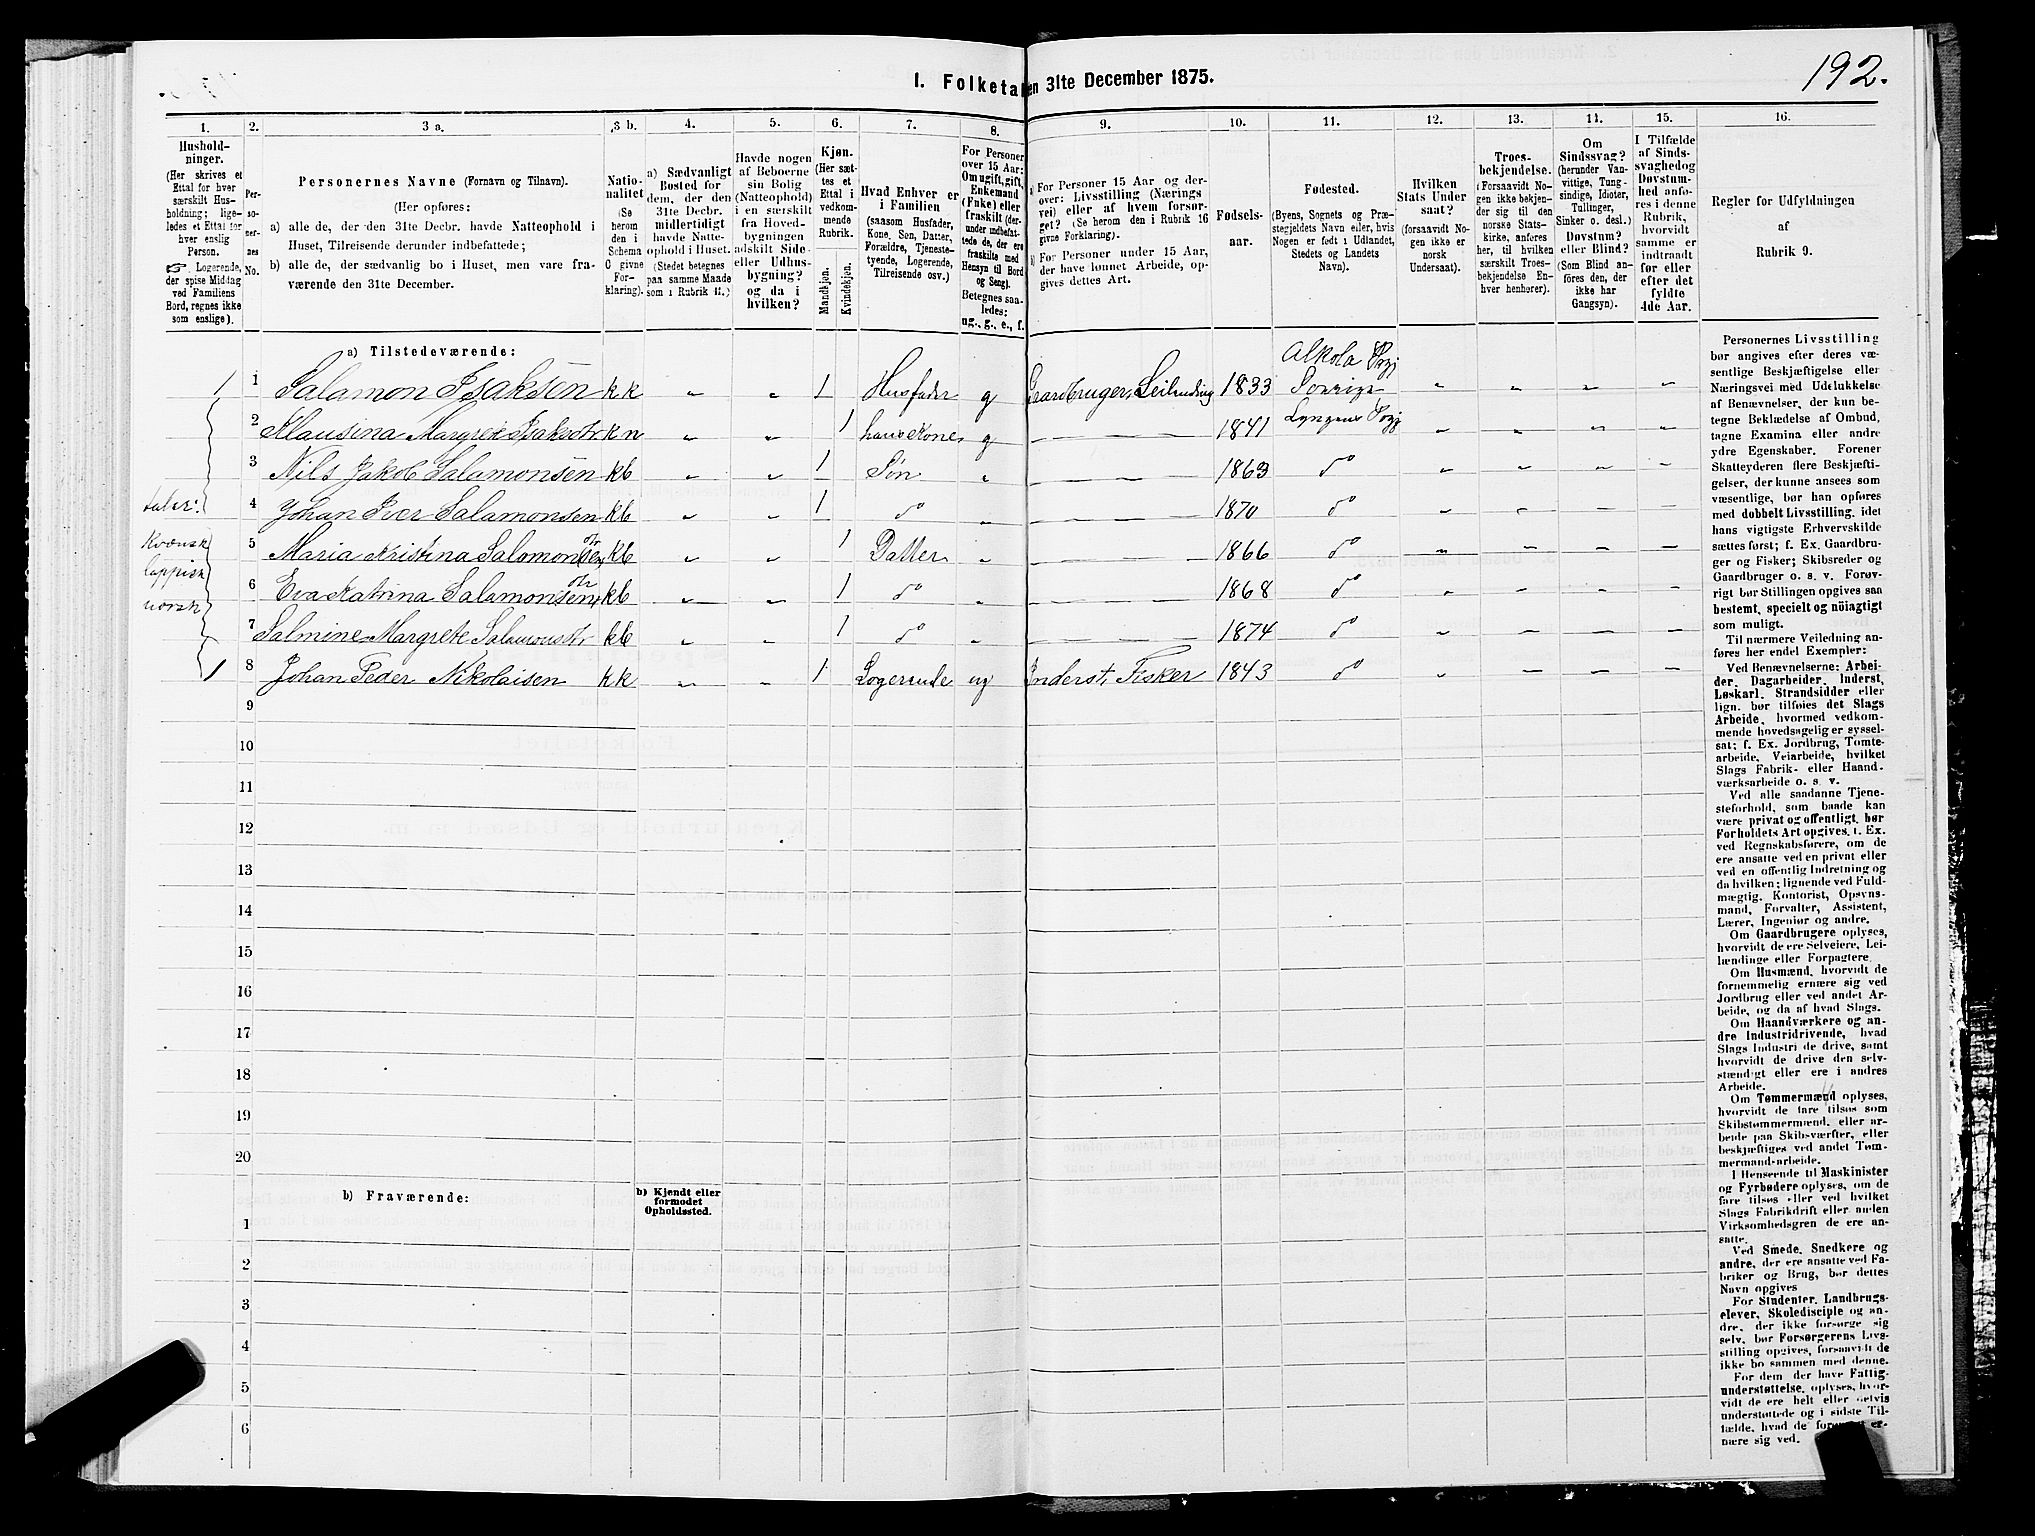 192.
I. Folketal en 31te December 1875.
1. 2. 3 a. 3 b. 4. 5. 6. 7. 8. 9. 10. 11. 12. 13. 14. 15. 16.
Hushold-
ninger.
(Her skrives et
Ettal for hver
særskilt Hus-
holdning; lige-
ledes et Ettal for
hver enslig
Person.
☞ Logerende,
der spise Middag
ved Familiens
Bord, regnes ikke
som enslige).
Per-
so-
ner-
nes
No.
Personernes Navne (Fornavn og Tilnavn).
(Her opføres:
a) alle de, der den 31te Decbr. havde Natteophold i
Huset, Tilreisende derunder indbefattede;
b) alle de, der sædvanlig bo i Huset, men vare fra-
værende den 31te December.
Natio-
nalitet
(Se
herom
den i
Schema
C givne
For-
klaring).
a) Sædvanligt
Bosted for
dem, der den
31te Decbr.
midlertidigt
havde Natte-
ophold i Huset.
(Stedet betegnes
paa samme Maade
som i Rubrik 11.)
Havde nogen
af Beboerne
sin Bolig
(Natteophold)
i en særskilt
fra Hoved-
bygningen
adskilt Side-
eller Udhus-
bygning?
og da i
hvilken?
Kjøn.
(Her sæt-
tes et
Ettal i
vedkom-
mende
Rubrik.
Mandkjøn.
Kvindekjøn.
Hvad Enhver er
i Familien
(saasom Husfader,
Kone, Søn, Datter,
Forældre, Tjeneste-
tyende, Logerende,
Tilreisende osv.)
For Personer
over 15 Aar:
Om ugift, gift,
Enkemand
(Enke) eller
fraskilt (der-
under indbefat-
tede de, der ere
fraskilte med
Hensyn til Bord
og Seng).
Betegnes saa-
ledes:
ug., g., e., f.
a) For Personer 15 Aar og der-
over: Livsstilling (Nærings
vei) eller af hvem forsør-
get? (Se herom den i Rubrik 16
givne Forklaring).
b) For Personer under 15 Aar,
der have lønnet Arbeide, op-
gives dettes Art.
Fødsels-
aar.
Fødested.
(Byens, Sognets og Præ-
stegjeldets Navn eller, hvis
Nogen er født i Udlandet,
Stedets og Landets
Navn).
Hvilken
Stats Under
saat?
(forsaavidt No-
gen ikke er
norsk
Undersaat).
Troes-
bekjendelse.
(Forsaavidt No-
gen ikke bekjen-
der sig til den
norske Stats-
kirke, anføres
her, til hvilken
særskilt Troes-
bekjendelse En-
hver henhører).
Om
Sindssvag?
(herunder Van-
vittige, Tung-
sindige, Idioter,
Tullinger,
Sinker o. desl.)
Døvstum?
eller Blind?
(Som Blind an-
føres den, der
ikke har
Gangsyn).
I Tilfælde
af Sinds-
svaghed og
Døvstum-
hed anfø-
res i denne
Rubrik,
hvorvidt
samme er
indtraadt
før eller
efter det
fyldte
4de Aar.
Regler for Udfyldningen
af
Rubrik 9.
a) Tilstedeværende:
Alkola Præj
1 1 Salamon Isaksen kk „ „ 1 Husfader g Gaardbruger, Leilending 1833 Sverige „ „ „ „
2 Klausina Margrete Isaksdtr kn „ „ 1 hans kone g 1841 Lyngens Præj „ „ „ „
3 Nils Jakob Salamonsen kb „ „ 1 Søn „ 1863 do „ „ „ „
taler: 4 Johan Iver Salamonsen kb „ „ 1 do „ 1870 do „ „ „ „
Kvænsk 5 Maria Kristina Salomonsen dtr kb „ „ 1 Datter „ 1866 do „ „ „ „
lappisk
6 Eva Katrina Salamonsen dtr kb „ „ 1 do „ 1868 do „ „ „ „
norsk
7 Salmine Margrete Salamonsdtr kb „ „ 1 do „ 1874 do „ „ „ „
1 8 Johan Peder Nikolaisen kk „ „ 1 Logerende ug Inderst, Fisker 1843 do „ „ „ „
9
10
11
12
13
14
15
16
17
18
19
20
b) Fraværende:
b) Kjendt eller
formodet
Opholdssted.
1
2
3
4
5
6
Personernes Livsstilling
bør angives efter deres væ-
sentlige Beskjæftigelse eller
Næringsvei med Udelukkelse
af Benævnelser, der kun be-
tegne Beklædelse af Ombud,
tagne Examina eller andre
ydre Egenskaber. Forener
Skatteyderen flere Beskjæfti-
gelser, der kunne ansees som
væsentlige, bør han opføres
med dobbelt Livsstilling, idet
hans vigtigste Erhvervskilde
sættes først; f. Ex. Gaardbru-
ger og Fisker; Skibsreder og
Gaardbruger o. s. v. Forøv-
rigt bør Stillingen opgives saa
bestemt, specielt og nöiagtigt
som muligt.
Til nærmere Veiledning an-
føres her endel Exempler:
Ved Benævnelserne: Arbei-
der, Dagarbeider, Inderst,
Løskarl, Strandsidder eller
lign. bør tilføies det Slags
Arbeide, hvormed vedkom-
mende hovedsagelig er syssel-
sat; f. Ex. Jordbrug, Tomte-
arbeide, Veiarbeide, hvilket
Slags Fabrik- eller Haand-
værksarbeide o. s. v.
Ved alle saadanne Tjene-
steforhold, som baade kan
være privat og offentligt, bør
Forholdets Art opgives, f. Ex.
ved Regnskabsførere, om de
ere ansatte ved en privat eller
ved en offentlig Indretning og
da hvilken; lignende ved Fuld-
mægtig, Kontorist, Opsyns-
mand, Forvalter, Assistent,
Lærer, Ingeniør og andre.
Om Gaardbrugere oplyses,
hvorvidt de ere Selveiere, Lei-
lændinge eller Forpagtere.
Om Husmænd, hvorvidt de
fornemmelig ernære sig ved
Jordbrug eller ved andet Ar-
beide, og da af hvad Slags.
Om Haandværkere og an-
dre Industridrivende, hvad
Slags Industri de drive, samt
hvorvidt de drive den selv-
stændigt eller ere i andres
Arbeide.
Om Tømmermænd oplyses,
hvorvidt de fare tilsøs som
Skibstømmermænd, eller ar-
beide paa Skibsværfter, eller
beskjæftiges ved andet Tøm-
mermand-arbeide.
I Henseende til Maskinister
og Fyrbødere oplyses, om de
fare tilsøs eller ved hvilket
Slags Fabrikdrift eller anden
Virksomhedsgren de ere an-
satte.
Ved Smede, Snedkere og
andre, der ere ansatte ved Fa-
briker og Brug, bør dettes
Navn opgives
For Studenter, Landbrugs-
elever, Skoledisciple og an-
dre, der ikke forsørge sig
selv, bør Forsørgerens Livs-
stilling opgives, forsaavidt de
ikke bo sammen med denne.
For dem, der have Fattig-
understøttelse, oplyses, hvor-
vidt de ere helt eller delvis
understøttede og i sidste Til-
fælde, hvad de er-
nære sig ved.